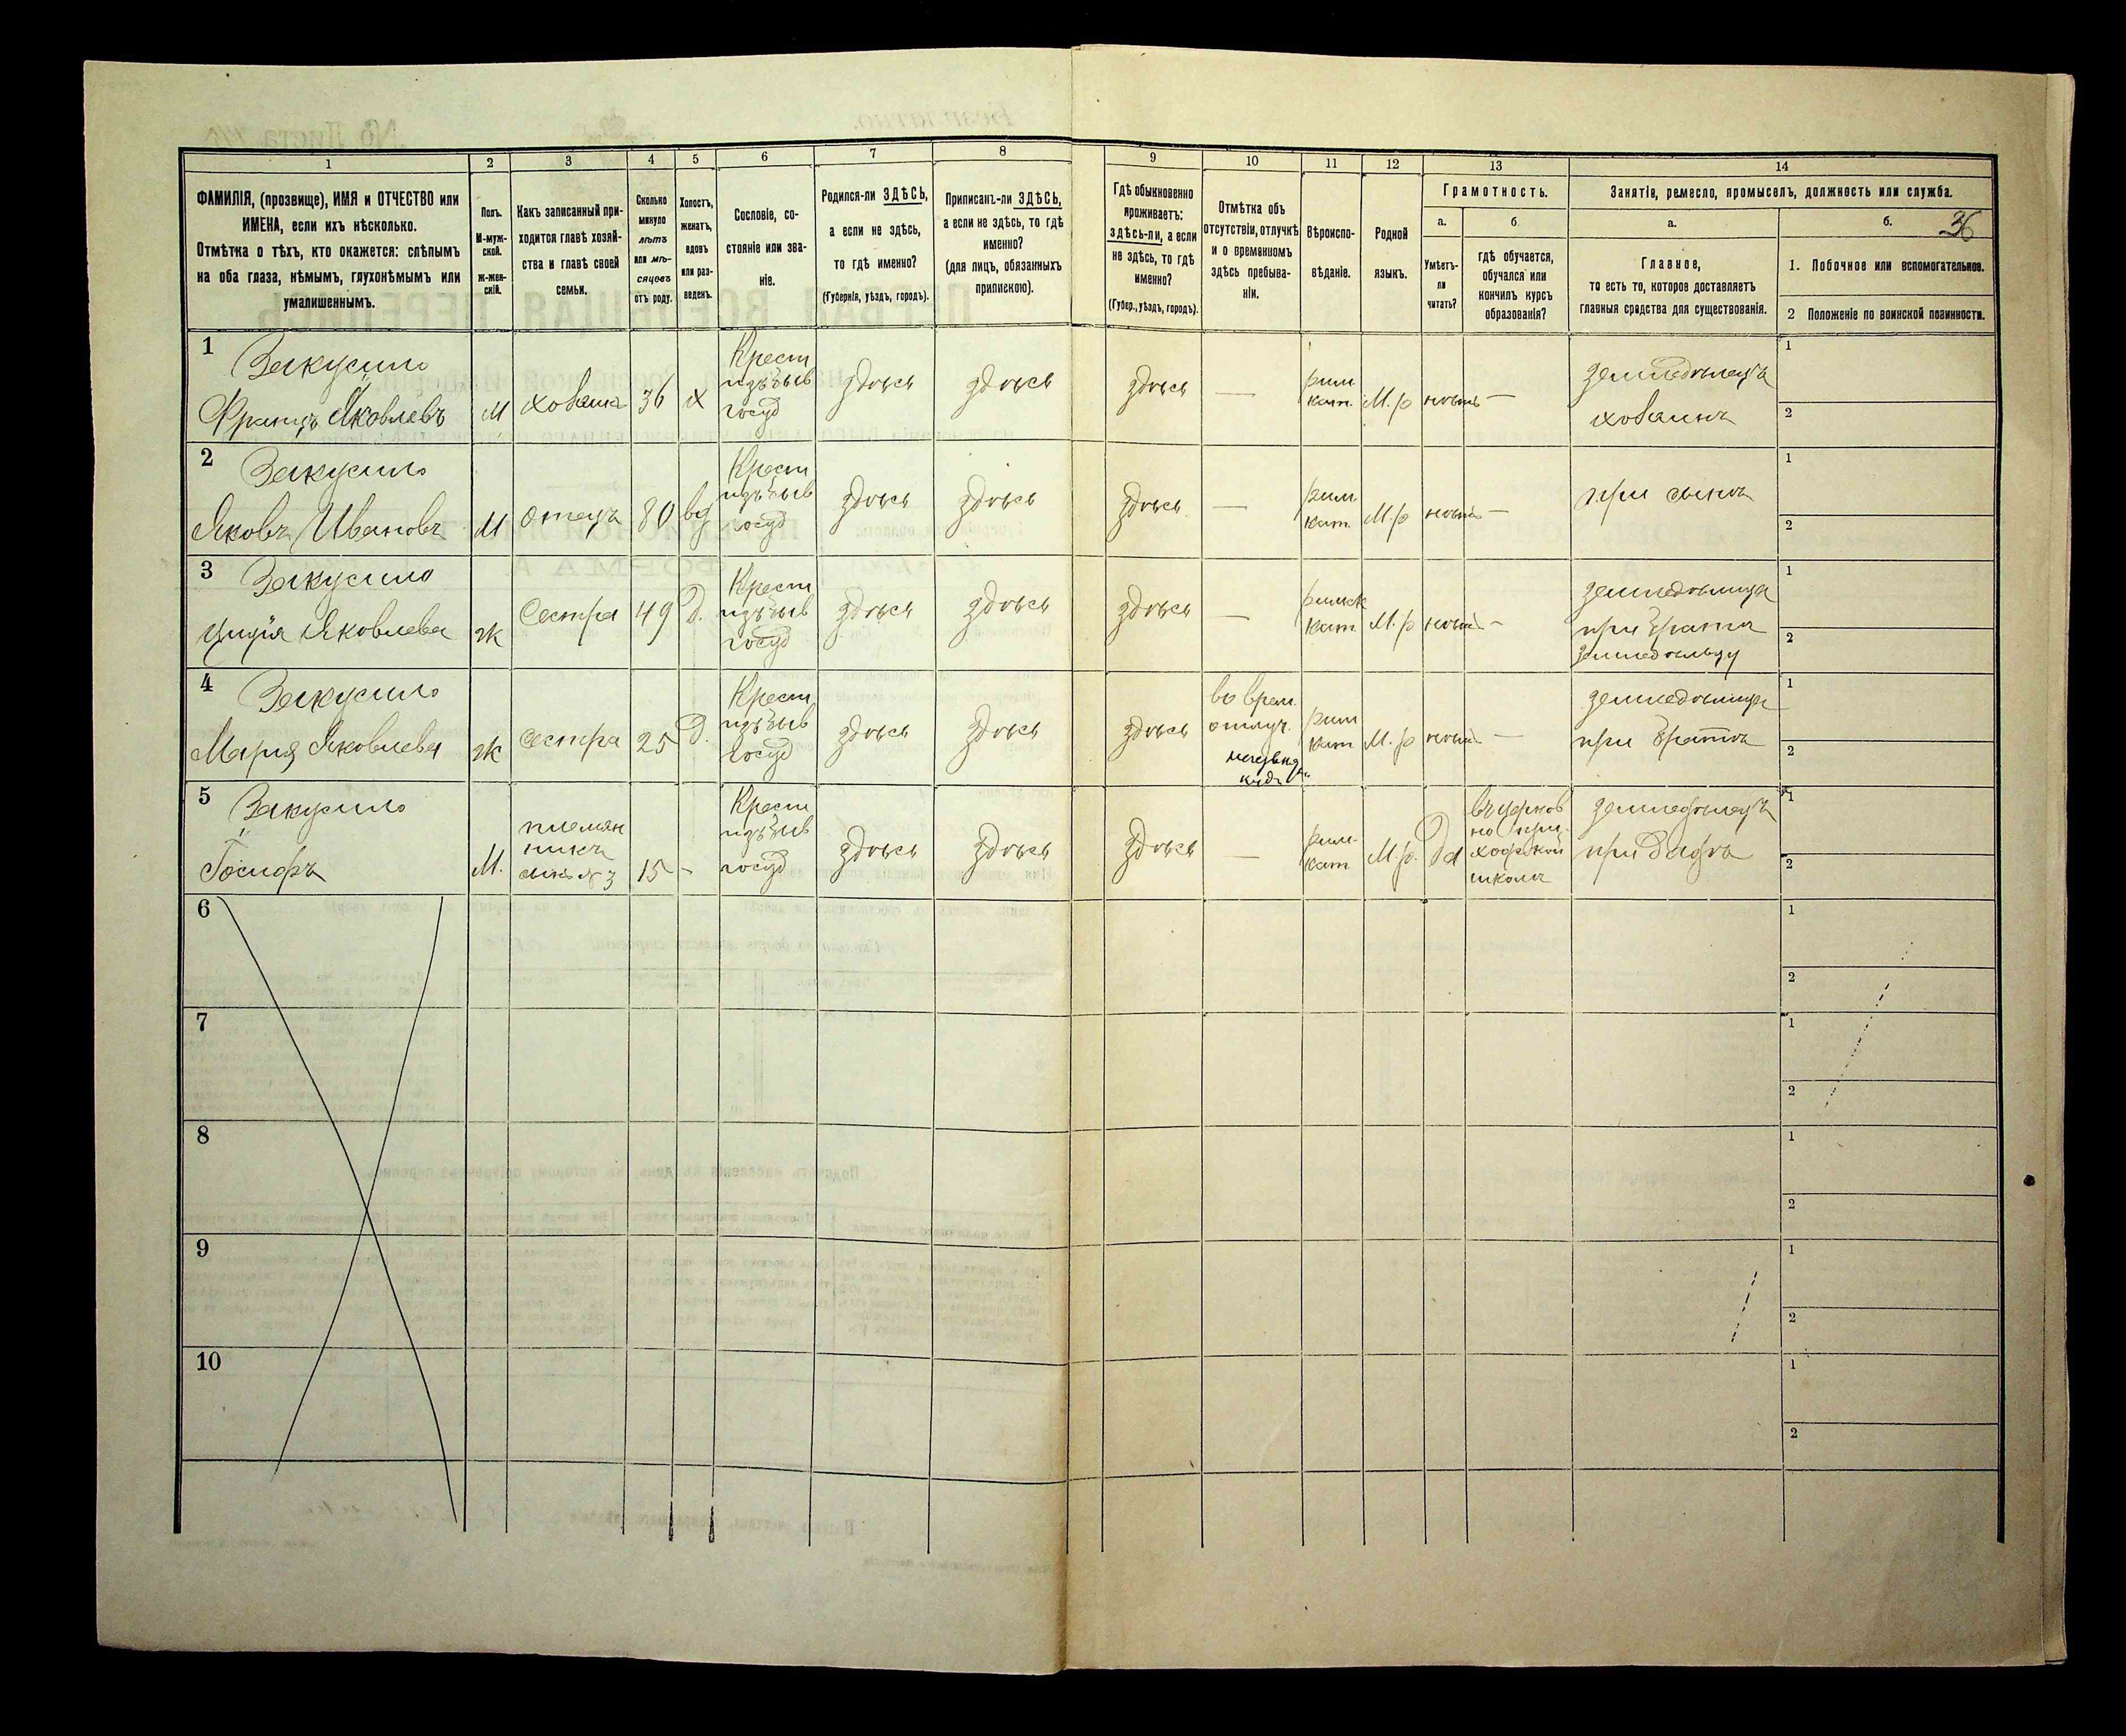 1
2
3
4
5
6
7
8
9
10
11
12
13
14
ФАМИЛІЯ, (прозвище), ИМЯ и ОТЧЕСТВО или
ИМЕНА, если ихъ нѣсколько.
Отмѣтка о тѣхъ, кто окажется: слѣпымъ
на оба глаза, нѣмымъ, глухонѣмымъ или
умалишеннымъ.
Полъ.
М-муж-
ской.
ж-жен-
скій.
Какъ записанный при-
ходится главѣ хозяй-
ства и главѣ своей
семьи.
Сколько
минуло
лѣтъ
или мѣ-
сяцевъ
отъ роду.
Холостъ,
женатъ,
вдовъ
или раз-
веденъ.
Сословіе, со-
стояніе или зва-
ніе.
Родился-ли ЗДѢСЬ,
а если не здѣсь,
то гдѣ именно?
(Губернія, уѣздъ, городъ).
Приписанъ-ли ЗДѢСЬ,
а если не здѣсь, то гдѣ
именно?
(для лицъ, обязанныхъ
припискою).
Гдѣ обыкновенно
проживаетъ:
здѣсь-ли, а если
не здѣсь, то гдѣ
именно?
(Губер., уѣздъ, городъ).
Отмѣтка объ
отсутствіи, отлучкѣ
и о временномъ
здѣсь пребыва-
ніи.
Вѣроиспо-
вѣданіе.
Родной
языкъ.
Грамотность.
а.
Умѣетъ-
ли
читать?
б
гдѣ обучается,
обучался или
кончилъ курсъ
образованія?
Занятія, ремесло, промыселъ, должность или служба.
а.
Главное,
то есть то, которое доставляетъ
главныя средства для существованія.
б.
36
1. Побочное или вспомогательное.
2 Положеніе по воинской повинности.
1
Закусило
Францъ Яковлевъ
М
хозяинъ
36
х
Крест
изъ быв
госуд
здѣсь
здѣсь
здѣсь
—
рим
кат.
М. р
—
земледѣлецъ
хозяинъ
1
2
2
Закусило
Яковъ Ивановъ
М
отецъ
80
вд
Крест
изъ быв
госуд
здѣсь
здѣсь
здѣсь
—
рим
кат.
М. р
—
при сынѣ
1
2
3
Закусило
Яковлева
ж
Сестра
49
Д.
Крест
изъ быв
госуд
здѣсь
здѣсь
здѣсь
—
римск
кат
М. р
—
земледѣлица
при братѣ
земледѣльцу
1
2
4
Закусило
Марія Яковлева
ж
Сестра
25
Д.
Крест
изъ быв
госуд
здѣсь
здѣсь
здѣсь
во врем.
отлуч.
рим
кат
М. р
—
земледѣлица
при братѣ
1
2
5
Закусило
Іосифъ
М.
племян
никъ
сынъ № 3
15
-
Крест
изъ быв
госуд
здѣсь
здѣсь
здѣсь
—
рим-
кат
М. р.
Да
въ церков
но при-
ходской
школѣ
земледѣлецъ
при дядѣ
1
2
6
1
2
7
1
2
8
1
2
9
1
2
10
1
2